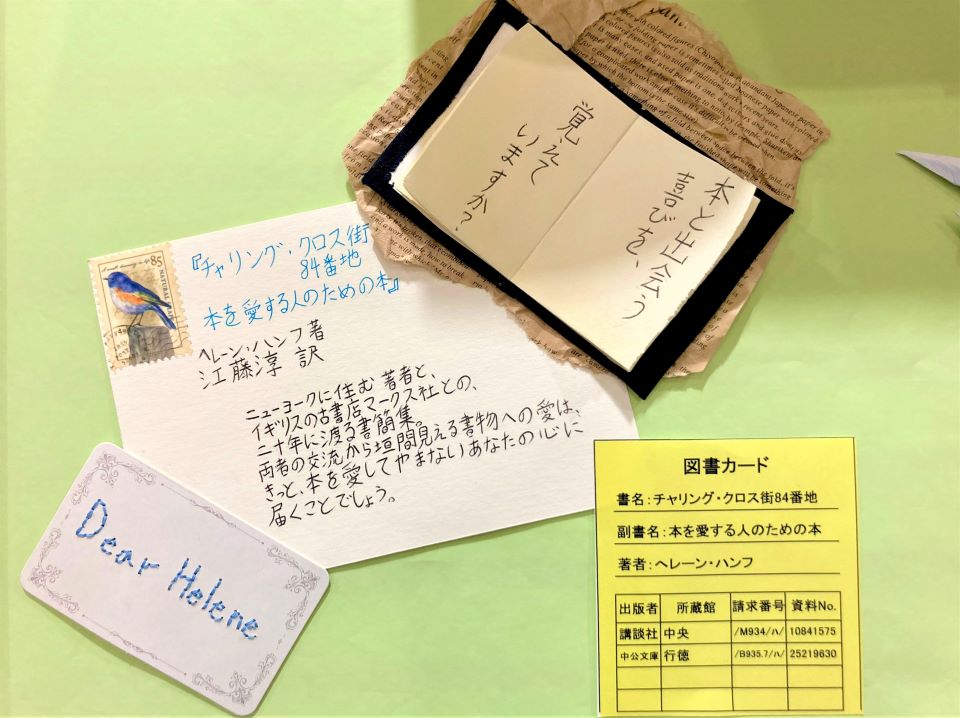 本と出会う
喜びを、
覚えて
いますか?
85
『チャリング・クロス街
84番地
本を愛する人のための本』
ヘレーン・ハンフ著
江藤淳 訳
ニューヨークに住む著者と、
イギリスの古書店マークス社との、
二十年に渡る書簡集。
両者の交流から垣間見える書物への愛は、
きっと、本を愛してやまないあなたの心に
届くことでしょう。
Dear Helene
図書カード
書名:チャリング・クロス街84番地
副書名:本を愛する人のための本
著者:ヘレーン・ハンフ
出版者 所蔵館 請求番号 資料No.
講談社 中央 /M934/ハ/ 10841575
中公文庫 行徳 /B935.7/ハ/ 25219630